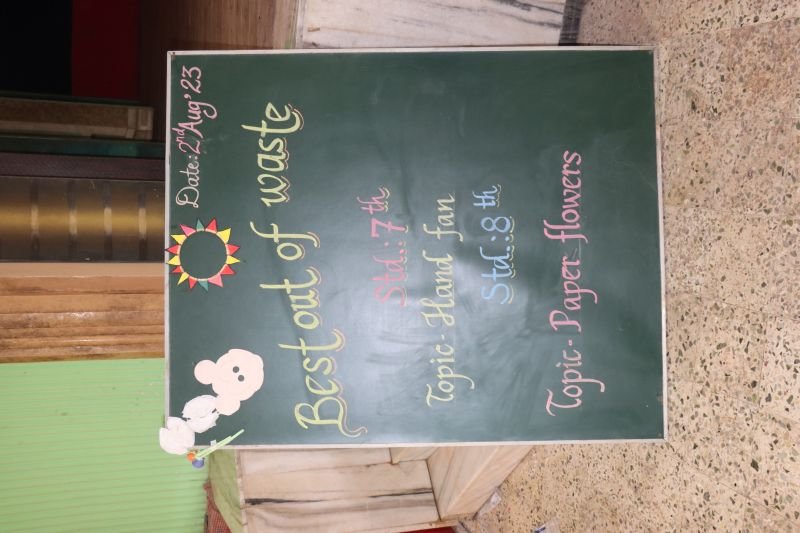 Date: 2nd Aug' 23
Best out of waste
Std.: 7th
Topic- Hand fan
Std.: 8th
Topic- Paper flowers